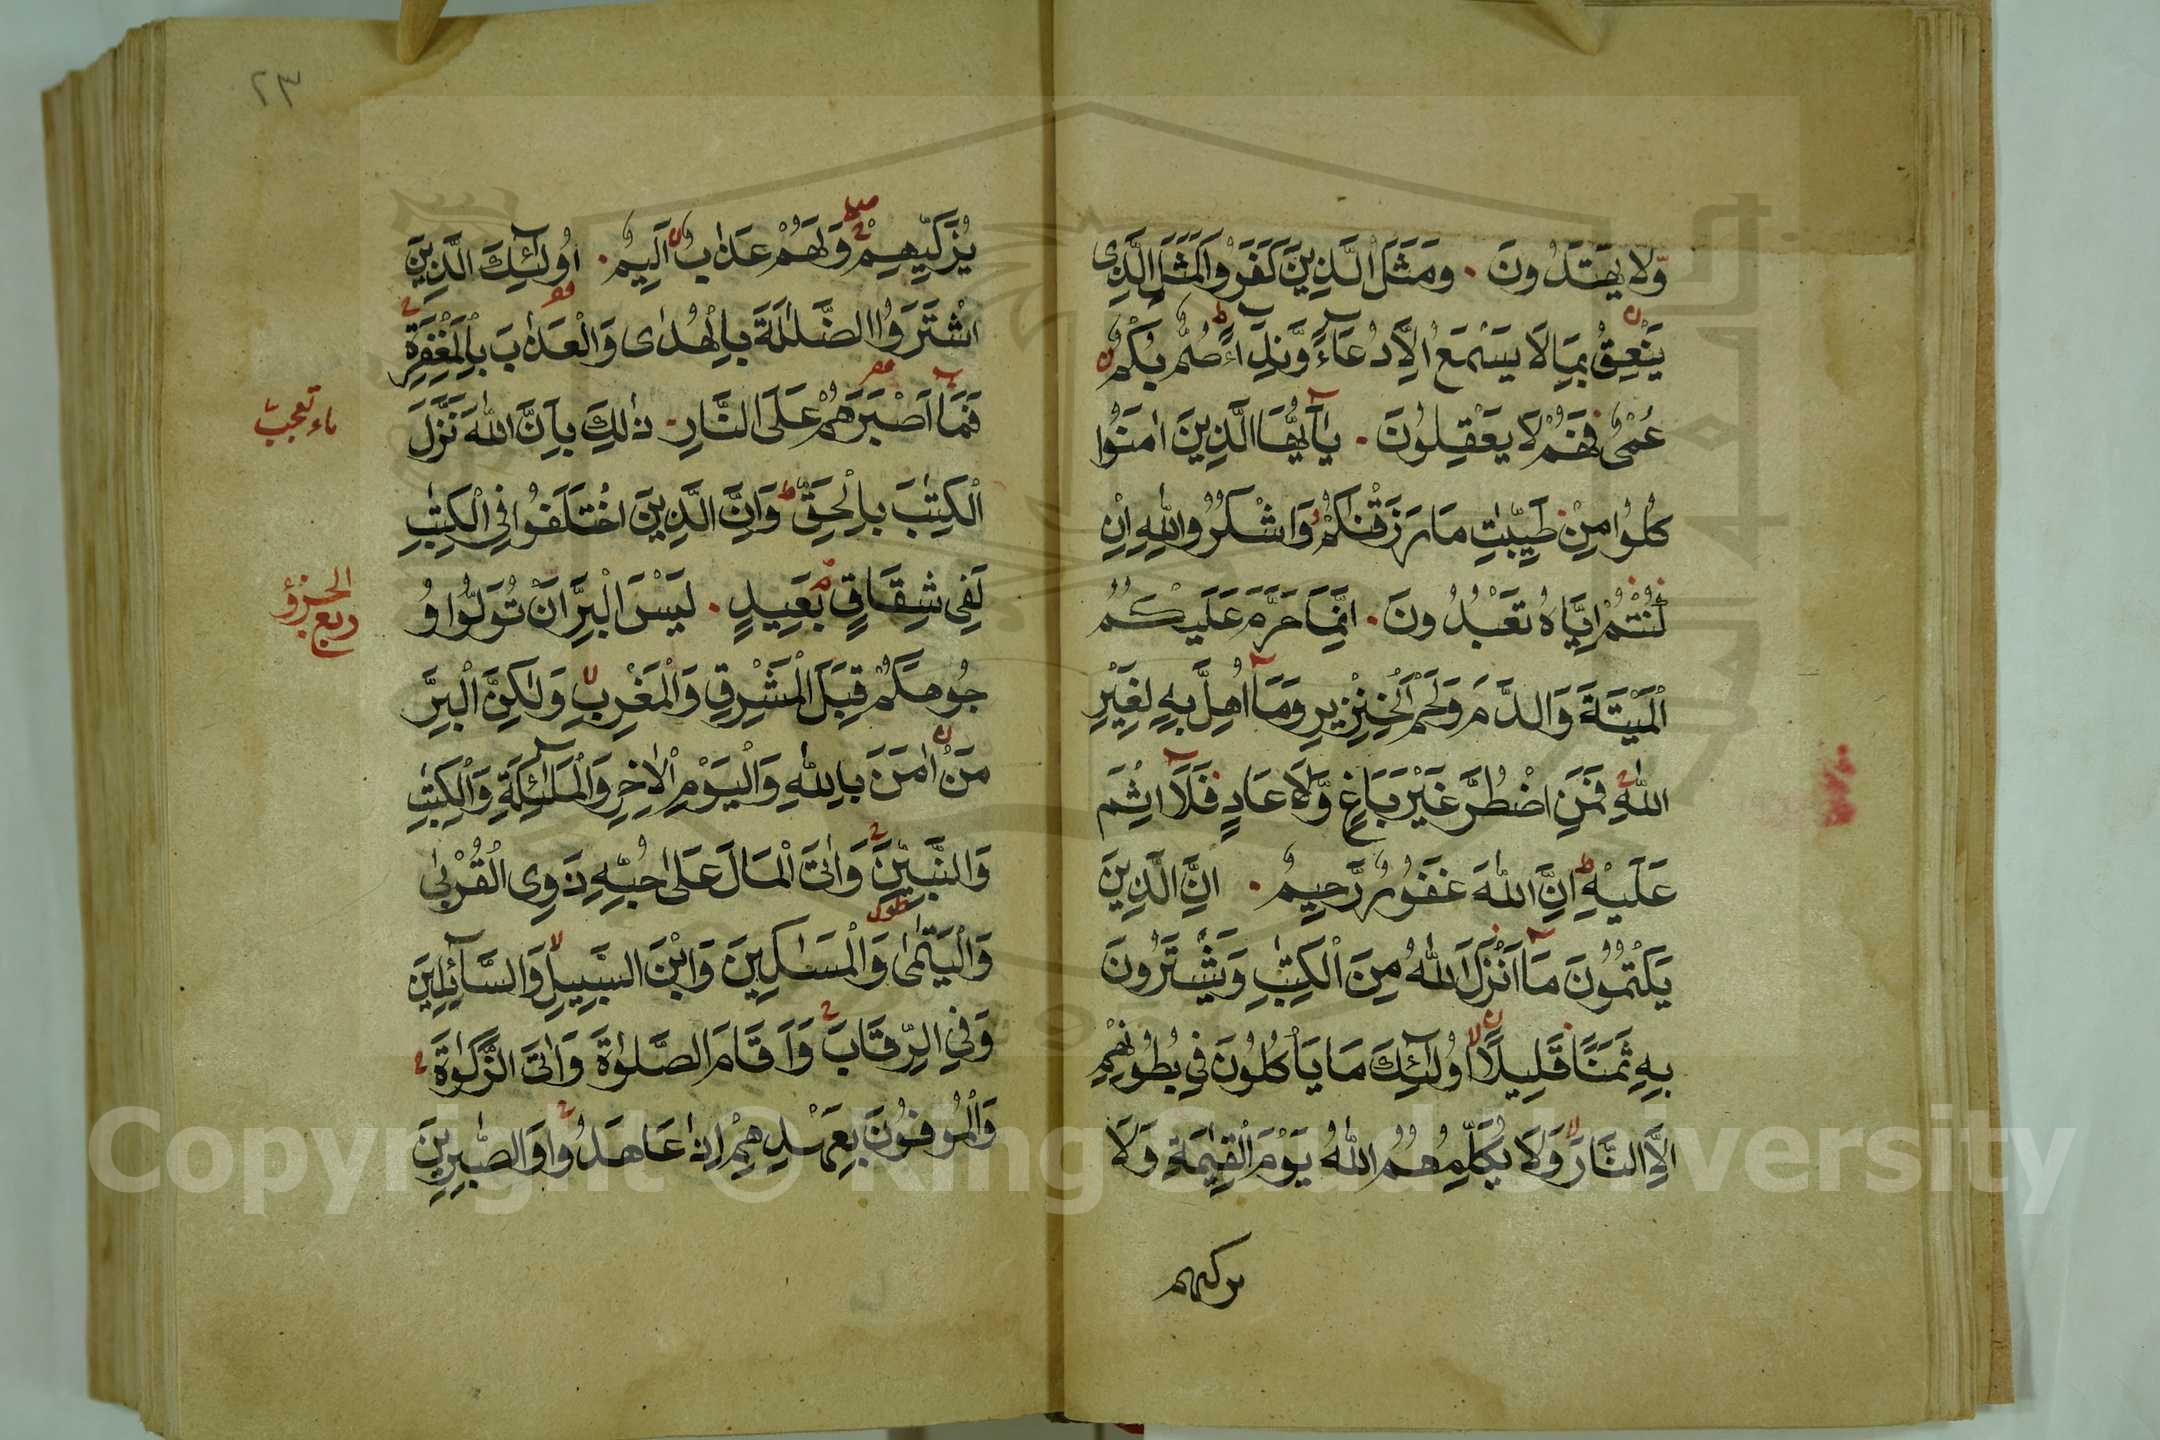 وَّلَا يَهْتَدُونَ ۰ وَمَثَلُ الَّذِينَ كَفَرُوا كَمَثَلِ الَّذِى
يَنْعِقُ بِمَا لَا يَسْمَعُ اِلَّا دُعَآءً وَّنِدَآءً صُمٌّ بُكْمٌ
عُمْىٌ فَهُمْ لَا يَعْقِلُونَ ۰ يٰٓاَيُّهَا الَّذِينَ اٰمَنُوا
كُلُوا مِنْ طَيِّبٰتِ مَا رَزَقْنٰكُمْ وَاشْكُرُوا لِلّٰهِ اِنْ
كُنْتُمْ اِيَّاهُ تَعْبُدُونَ ۰ اِنَّمَا حَرَّمَ عَلَيْكُمُ
الْمَيْتَةَ وَالدَّمَ وَلَحْمَ الْخِنْزِيرِ وَمَآ اُهِلَّ بِهٖ لِغَيْرِ
اللّٰهِ فَمَنِ اضْطُرَّ غَيْرَ بَاغٍ وَّلَا عَادٍ فَلَآ اِثْمَ
عَلَيْهِ اِنَّ اللّٰهَ غَفُورٌ رَّحِيمٌ ۰ اِنَّ الَّذِينَ
يَكْتُمُونَ مَآ اَنْزَلَ اللّٰهُ مِنَ الْكِتٰبِ وَيَشْتَرُونَ
بِهٖ ثَمَنًا قَلِيلًا اُولٰٓئِكَ مَا يَأْكُلُونَ فِي بُطُونِهِمْ
اِلَّا النَّارَ وَلَا يُكَلِّمُهُمُ اللّٰهُ يَوْمَ الْقِيٰمَةِ وَلَا
يزكيهم
٢٣
يُزَكِّيهِمْ وَلَهُمْ عَذَابٌ اَلِيمٌ ۰ اُولٰٓئِكَ الَّذِينَ
اشْتَرَوُا الضَّلٰلَةَ بِالْهُدٰى وَالْعَذَابَ بِالْمَغْفِرَةِ
فَمَآ اَصْبَرَهُمْ عَلَى النَّارِ ۰ ذٰلِكَ بِاَنَّ اللّٰهَ نَزَّلَ
ماء تعجب
الْكِتٰبَ بِالْحَقِّ وَاِنَّ الَّذِينَ اخْتَلَفُوا فِي الْكِتٰبِ
لَفِي شِقَاقٍ بَعِيدٍ ۰ لَيْسَ الْبِرَّ اَنْ تُوَلُّوا وُ
ربع الحزؤ
جُوهَكُمْ قِبَلَ الْمَشْرِقِ وَالْمَغْرِبِ وَلٰكِنَّ الْبِرَّ
مَنْ اٰمَنَ بِاللّٰهِ وَالْيَوْمِ الْاٰخِرِ وَالْمَلٰٓئِكَةِ وَالْكِتٰبِ
وَالنَّبِيّٖنَ وَاٰتَى الْمَالَ عَلٰى حُبِّهٖ ذَوِى الْقُرْبٰى
وَالْيَتٰمٰى وَالْمَسٰكِينَ وَابْنَ السَّبِيلِ وَالسَّآئِلِينَ
وَفِي الرِّقَابِ وَاَقَامَ الصَّلٰوةَ وَاٰتَى الزَّكٰوةَ
وَالْمُوفُونَ بِعَهْدِهِمْ اِذَا عَاهَدُوا وَالصّٰبِرِينَ
Copyright © King Saud University